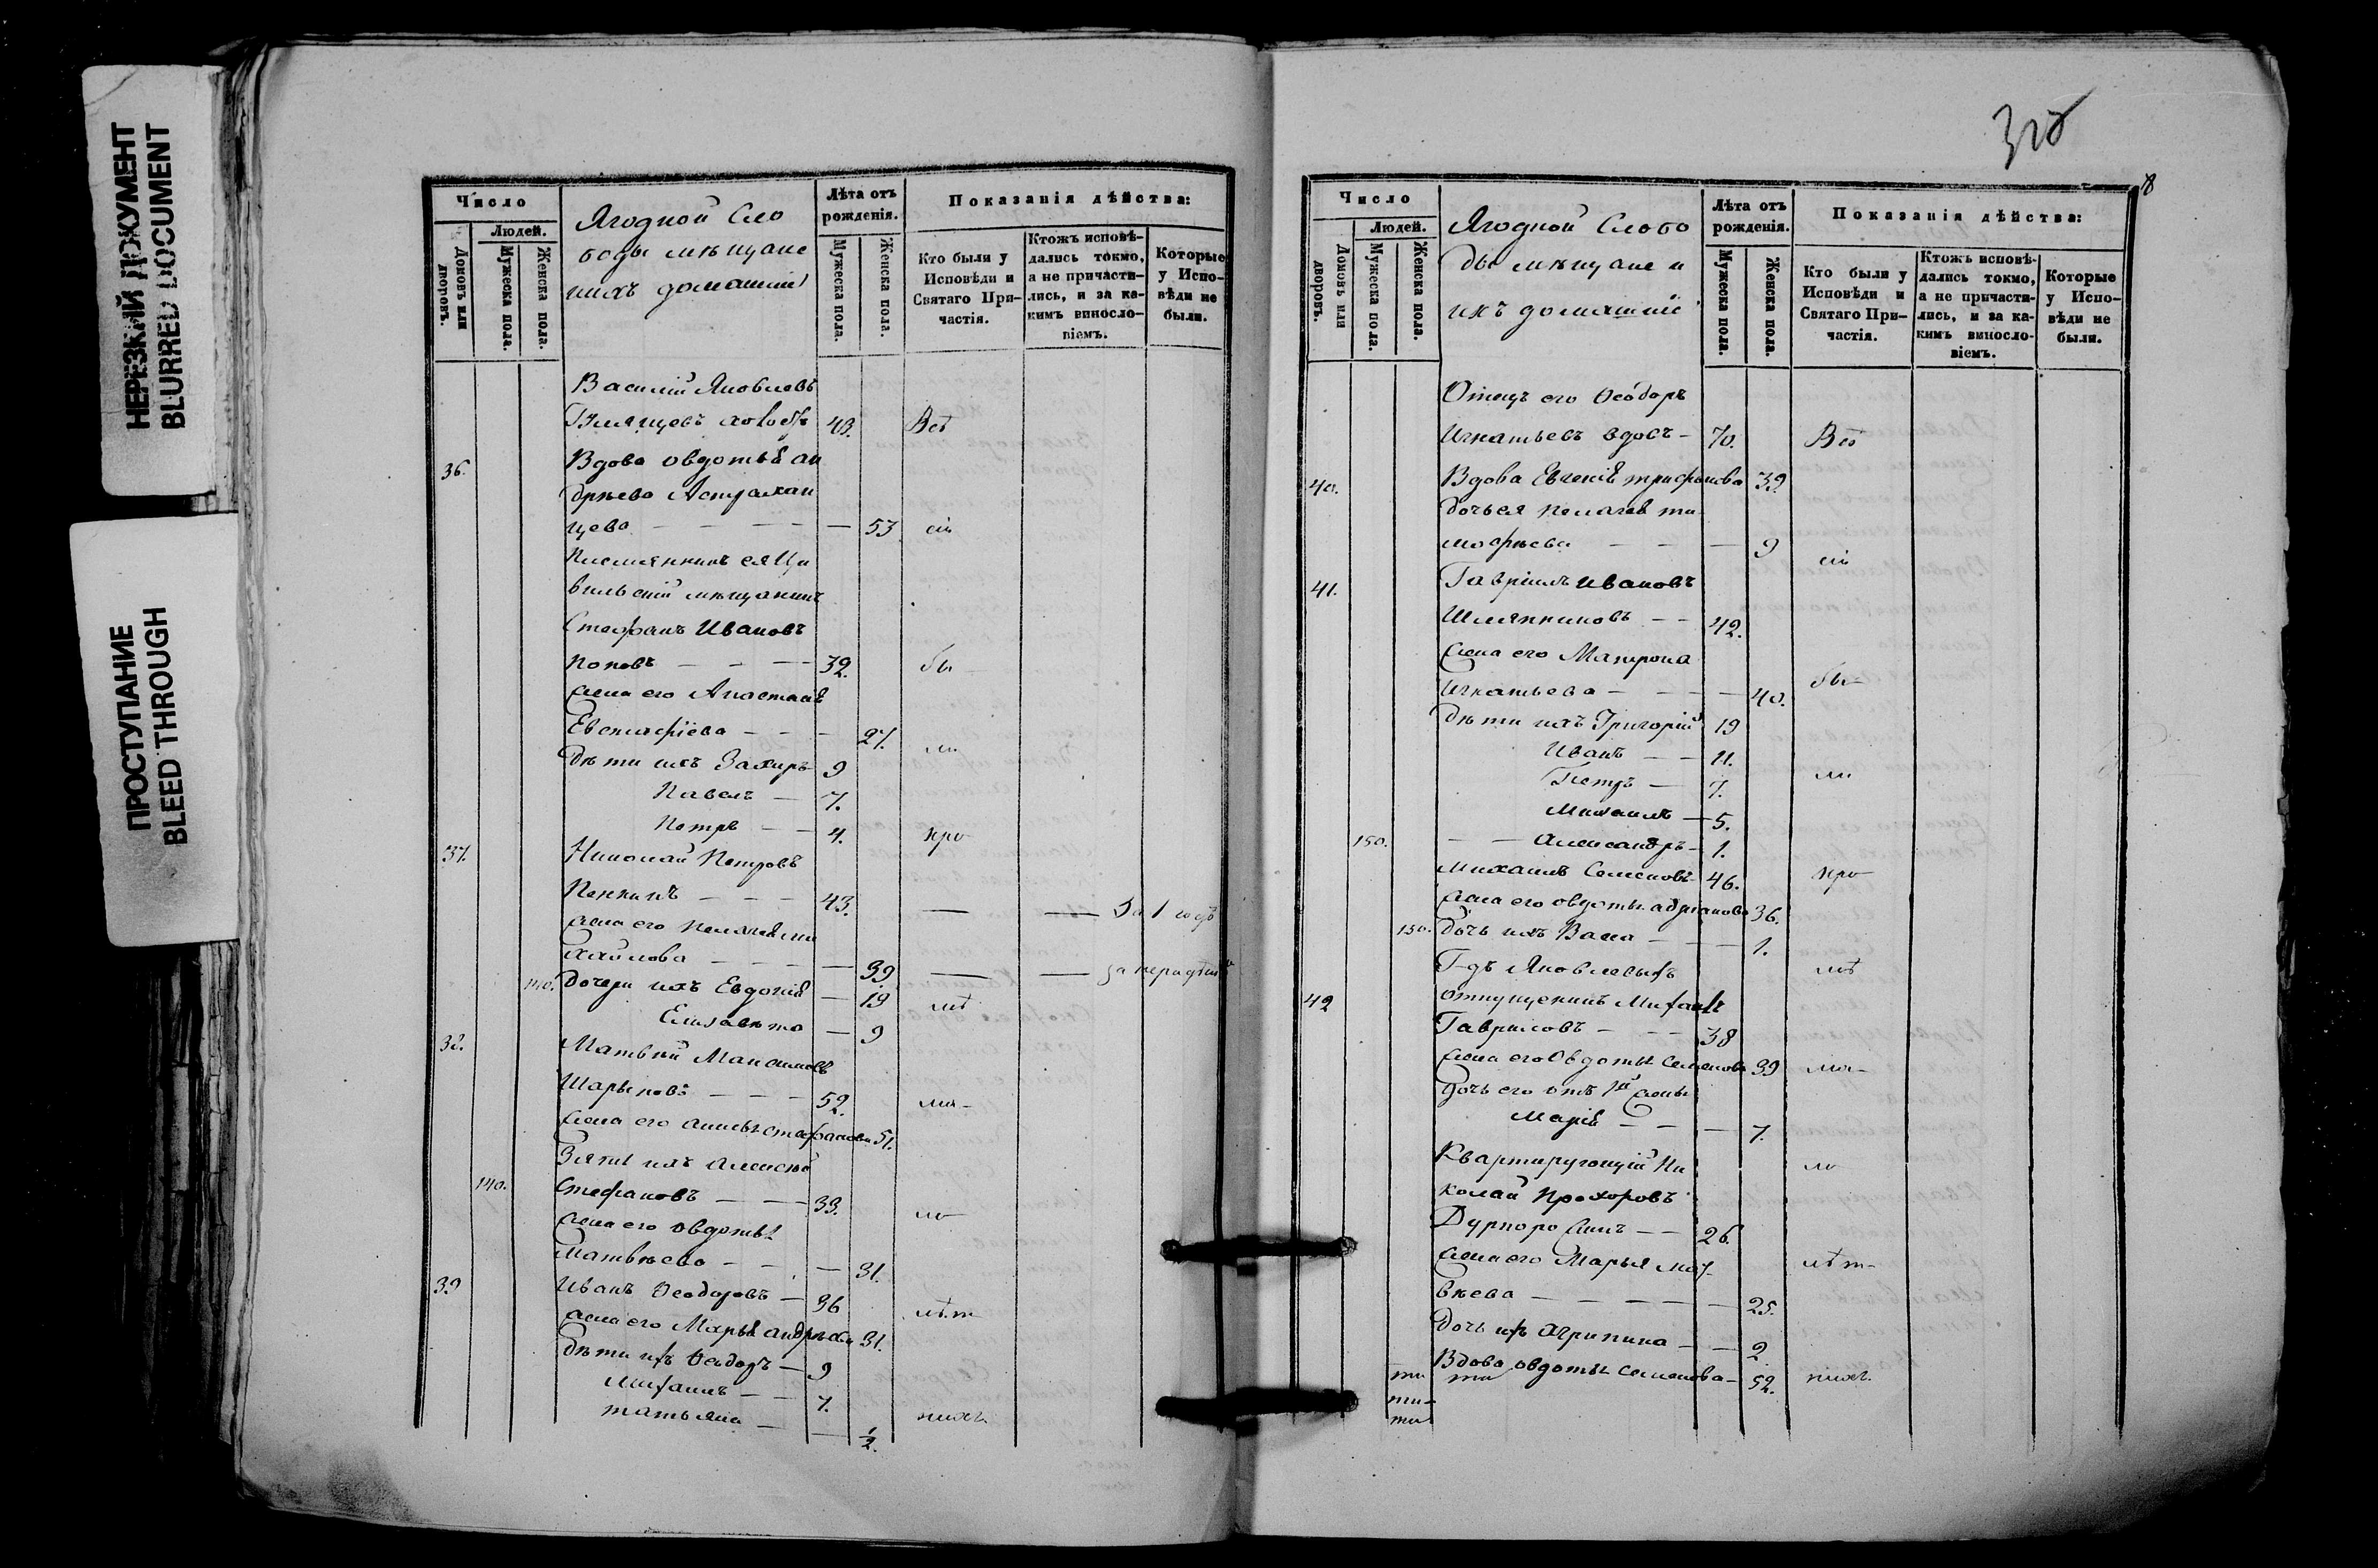 НЕРЕЗКИЙ ДОКУМЕНТ
BLURRED DOCUMENT
ПРОСТУПАНИЕ
BLEED THROUGH
Число
Людей.
Домовъ или дворовъ.
Мужеска пола.
Женска пола.
Ягодной Сло
боды мѣщане
ихъ домашніи
Лѣта отъ рожденія.
Мужеска пола.
Женска пола.
Показанія дѣйства:
Кто были у Исповѣди и Святаго Причастія.
Ктожъ исповѣдались токмо, а не причастились, и за какимъ винословіемъ.
Которые у Исповѣди не были.
Василій Яковлевъ
48. Всѣ
36. Вдова Овдотья Ан
дреева Астрахан
цева — — — 53 сіи
Племянникъ ея Ци
вильскій мѣщанинъ
Стефанъ Ивановъ
Поповъ — — — 32. бы
Жена его Анастасія
Евстафіева — — 27. ли
Дѣти ихъ Захаръ 9
Павелъ — 7.
Петръ — — 4. про
37. Николай Петровъ
43. — — За 1 годъ
Жена его Пелагея Ми
хайлова — — — 39 — — за нерадѣніе
140. Дочери ихъ Евдокія — 19 лѣ
Елизавета — 9
38. Матвѣй Максимовъ
Шарыповъ — — — 52. ма-
Жена его Анна Стефанова 51.
Зять ихъ Алексѣй
140. Стефановъ — — 33. ло
Жена его Овдотья
Матвѣева — — — 31.
39 Иванъ Ѳеодоровъ — 36 лѣт
Жена его Марья Андреева 31.
Дѣти ихъ Ѳеодоръ — 9
Михаилъ — — 7.
Татьяна — — 1/2. нихъ
Число
Людей.
Домовъ или дворовъ.
Мужеска пола.
Женска пола.
Ягодной Слобо
ды мѣщане и
ихъ домашніе
Лѣта отъ рожденія.
Мужеска пола.
Женска пола.
Показанія дѣйства:
Кто были у Исповѣди и Святаго Причастія.
Ктожъ исповѣдались токмо, а не причастились, и за какимъ винословіемъ.
Которые у Исповѣди не были.
Отецъ его Ѳеодоръ
Игнатьевъ вдовъ — 70. Всѣ
40. Вдова Евгенія Трифонова 39.
Дочь ея Пелагея Ти
мофѣева — — — 9 сіи
41. Гавріилъ Ивановъ
Шляпниковъ — — 42.
Жена его Матрона
Игнатьева — — — 40. бы-
Дѣти ихъ Григорій 19
Иванъ — — 11.
Петръ — 7. ли
Михаилъ — 5.
150. — — Александръ — 1.
Михаилъ Семеновъ 46. про
Жена его Овдотья Адрианова 36.
150. Дочь ихъ Васса — — 1.
Г-дъ Яковлевыхъ лѣ
42 отпущенникъ Михаилъ
Гавриловъ — — — 38
Жена его Овдотья Семенова 39 ма-
Дочь его отъ 1й жены
Марія — — — 7.
Квартирующій Ни ло
колай Прохоровъ
26.
Жена его Марья Мат лѣт-
вѣева — — — — 25.
Дочь ихъ Агрипина — — 2
Вдова Овдотья Семенова — 52. нихъ.